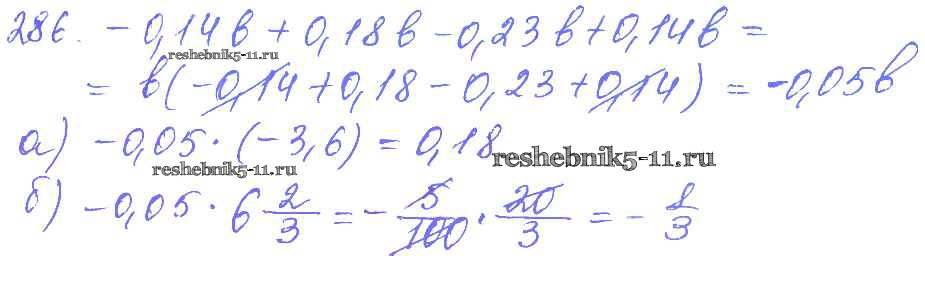 286. -0,14в + 0,18в - 0,23в + 0,14в =
reshebnik5-11.ru
= в(-0,14 + 0,18 - 0,23 + 0,14) = -0,05в
а) -0,05 · (-3,6) = 0,18
reshebnik5-11.ru
reshebnik5-11.ru
б) -0,05 · 6 2/3 = - 5/100 · 20/3 = - 1/3